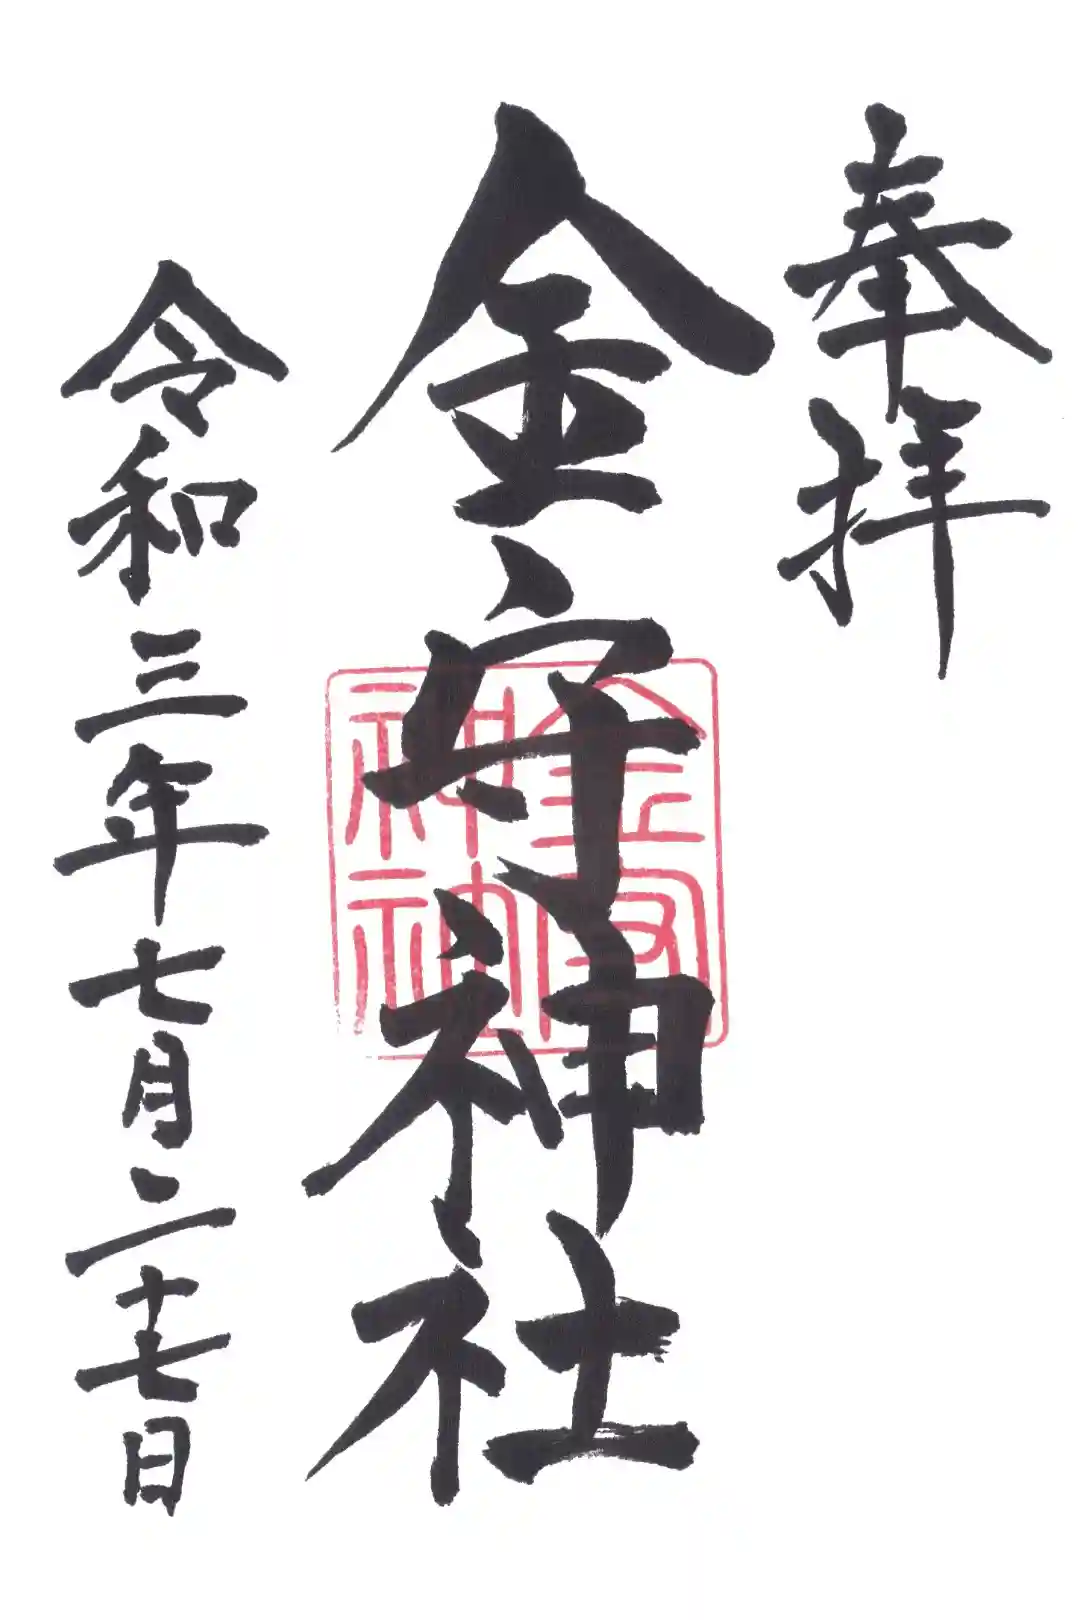 奉拝
金守神社
令和三年七月二十七日
金守
神社